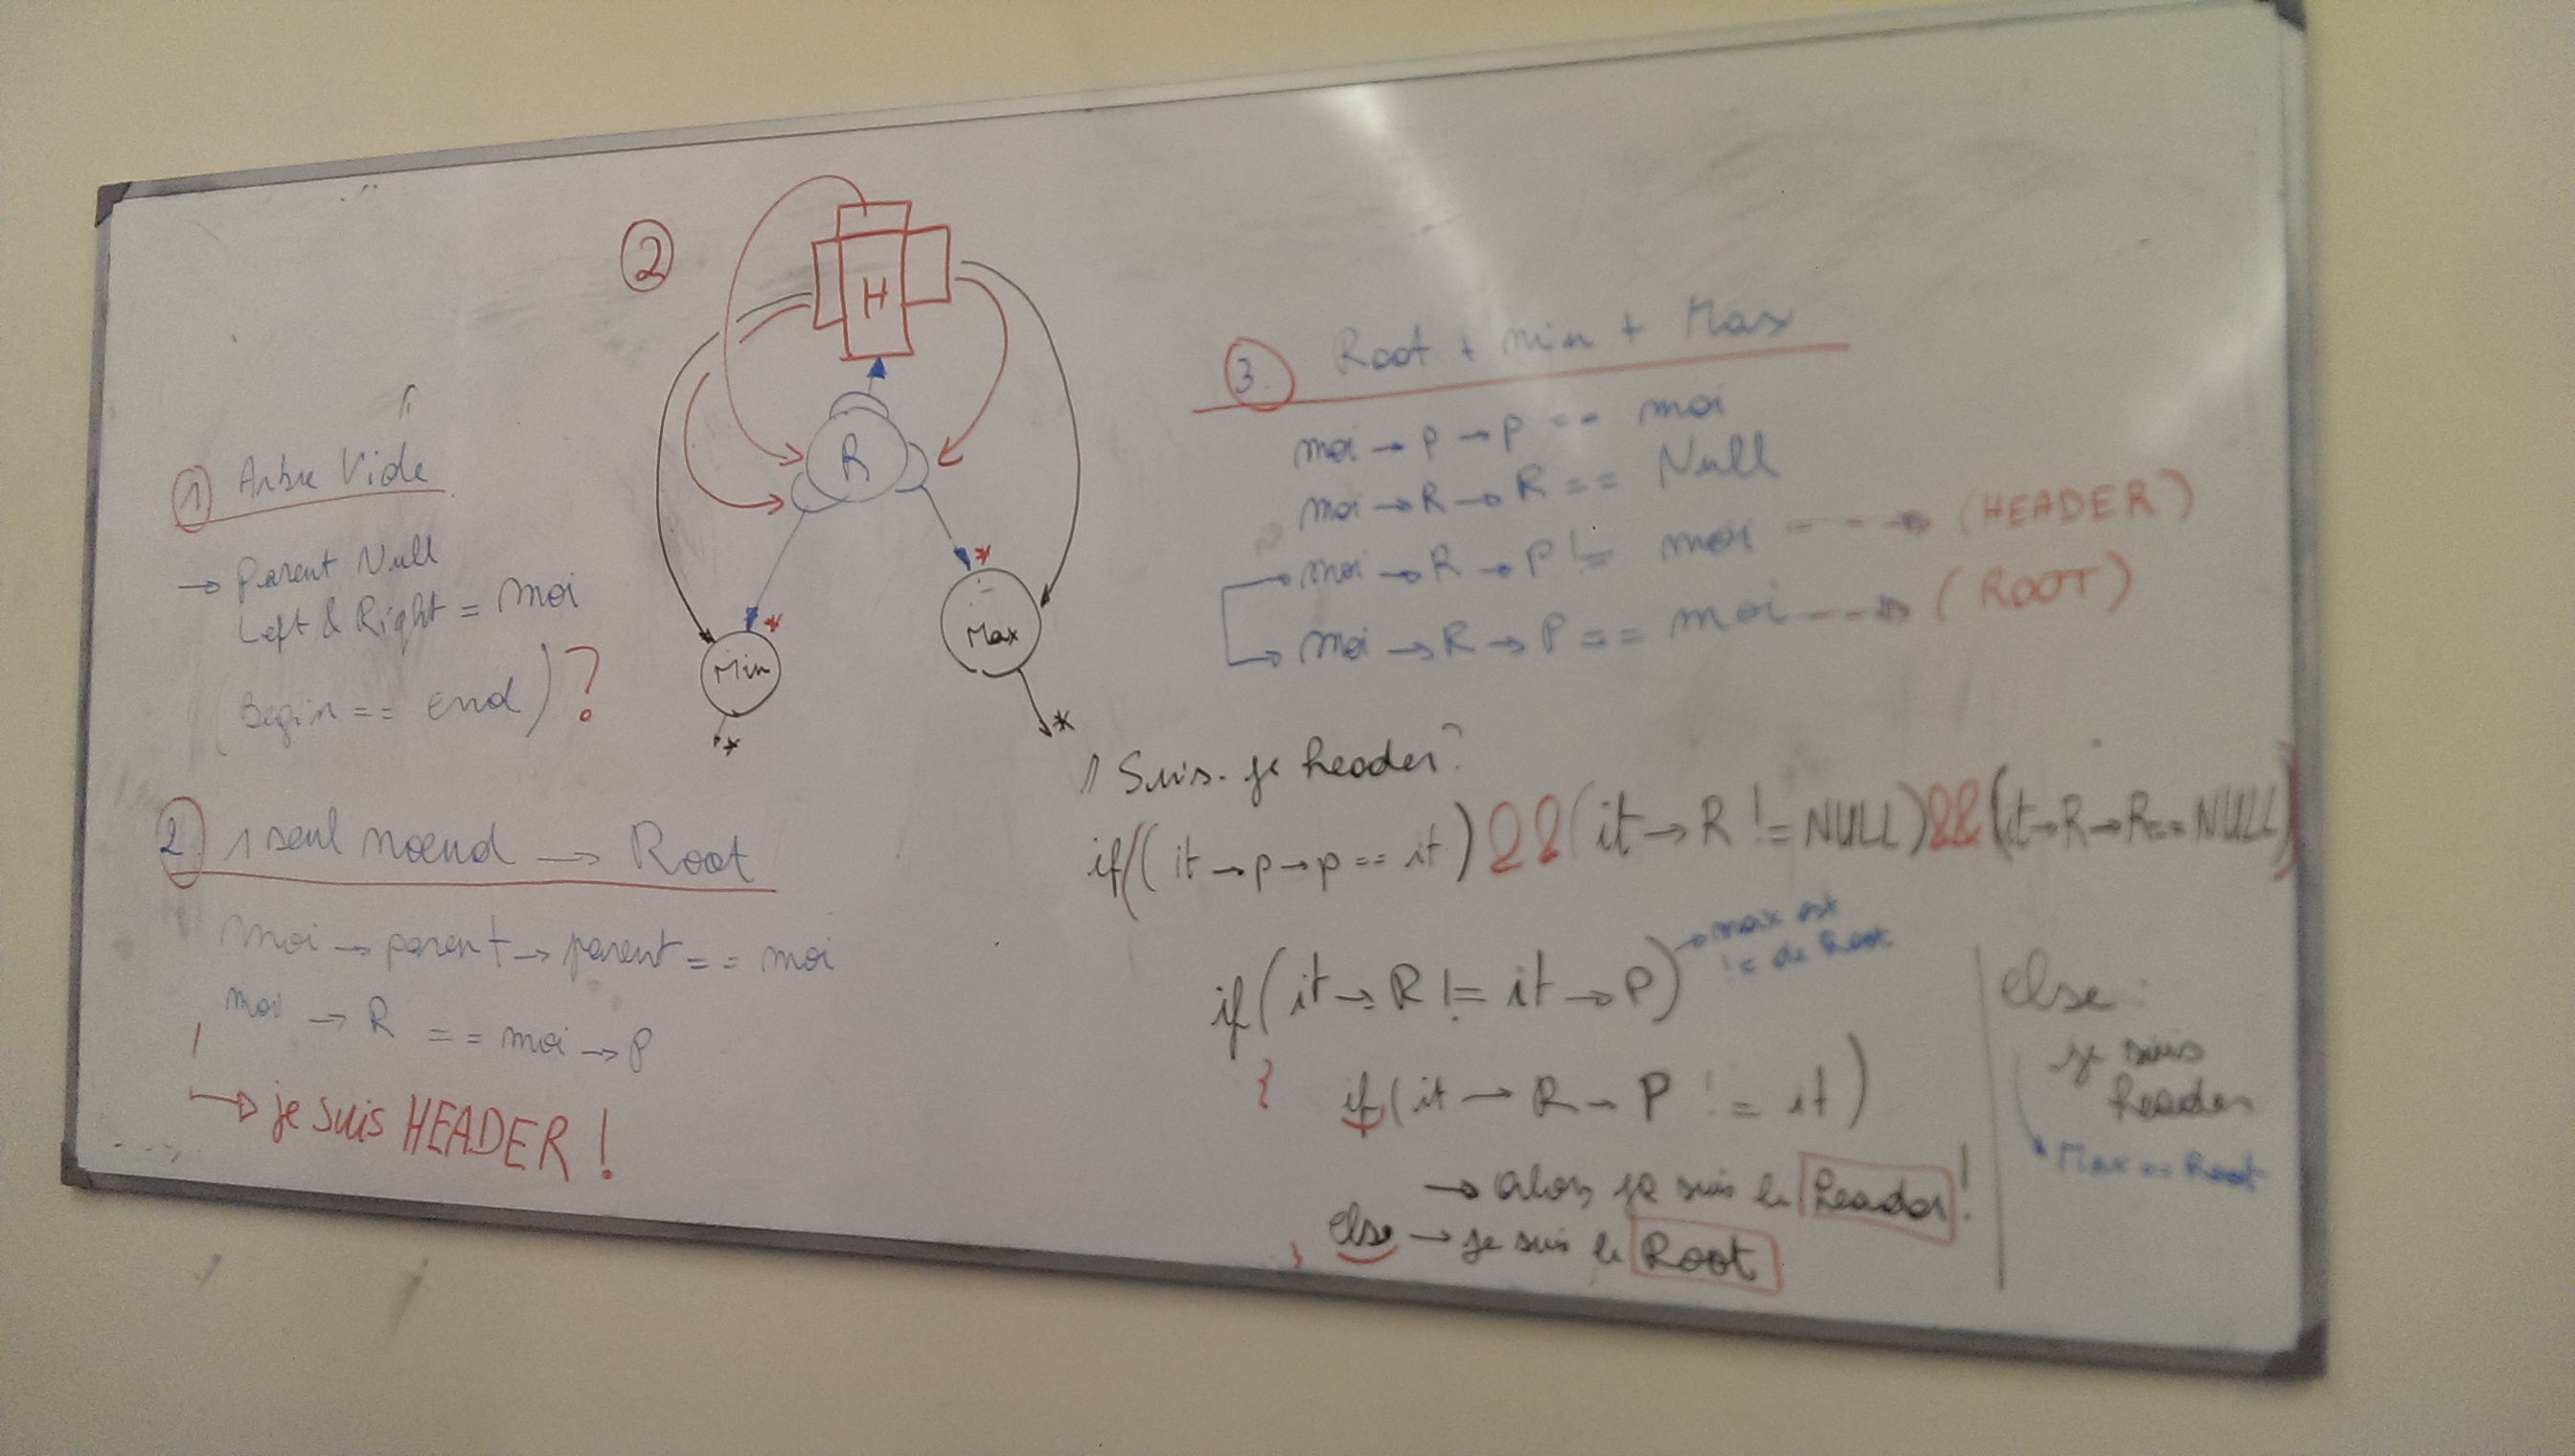 ① Arbre Vide
→ Parent Null
Left & Right = moi
(Begin == end) ?
2. 1 seul noeud → Root
moi → parent → parent == moi
moi → R == moi → P
→ je suis HEADER !
②
H
R
*
*
Min
Max
*
*
3. Root + min + Max
moi → P → P == moi
moi → R → R == Null
→ moi → R → P != moi ---→ (HEADER)
→ moi → R → P == moi ---→ (ROOT)
Suis-je header ?
if((it → P → P == it) && (it → R != NULL) && (it → R → R == NULL))
if (it → R != it → P) → max est
!= de Root
{ if (it → R → P != it)
→ alors je suis le header !
} else → je suis le Root
else :
je suis
header
Max == Root